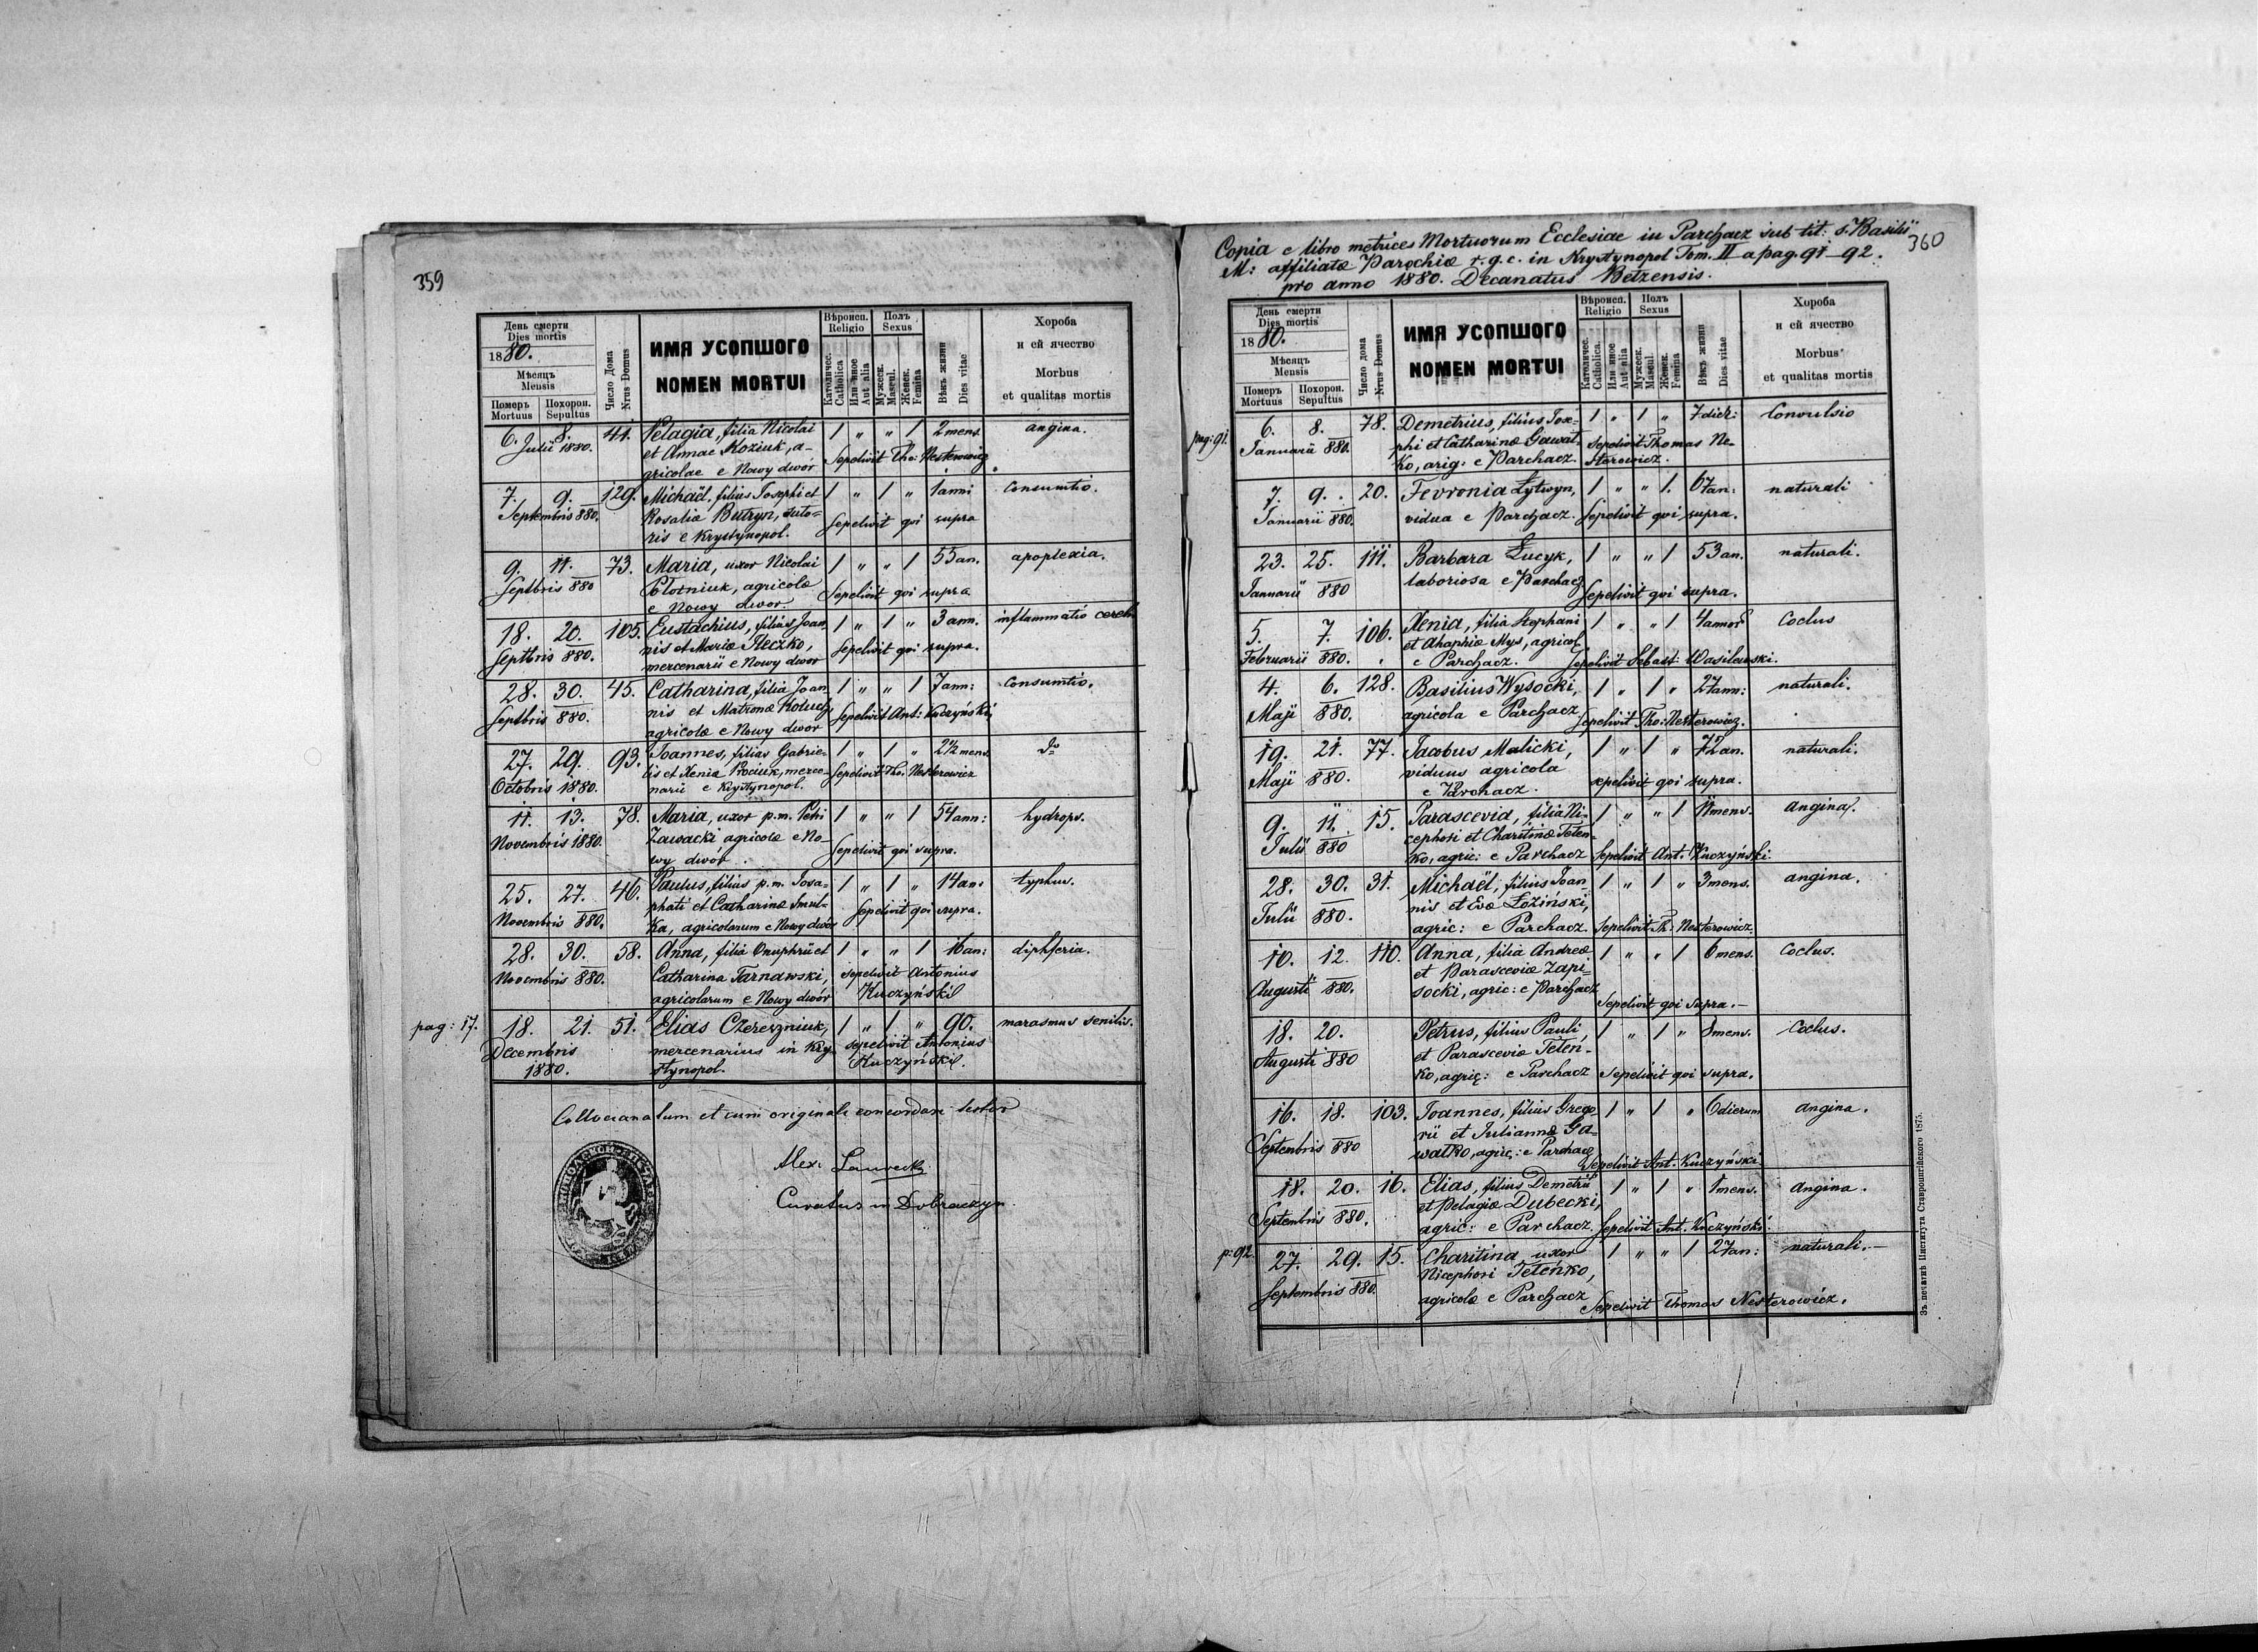 359
День смерти
Dies mortis
1880.
Мѣсяць
Mensis
Померъ
Mortuus
Похорон.
Sepultus
Число Дома
Nrus Domus
ИМЯ УСОПШОГО
NOMEN MORTUI
Вѣроисп.
Religio
Католичес.
Catholica
Или иное
Aut alia
Полъ
Sexus
Мужеск.
Mascul.
Женск.
Femina
Вѣкъ жизни
Dies vitae
Хороба
и ей ячество
Morbus
et qualitas mortis
6. 8. 41. Pelagia, filia Nicolai 1 " " 1 2 mens. angina.
Julii 1880. et Annae Koziuk, a- Sepelivit Tho: Nesterowicz
gricolae e Nowy dwór
7. 9. 129. Michaël, filius Josephi et 1 " 1 " 1 anni Consumtio.
Septembris 880. Rosaliæ Butryn, suto- Sepelivit qui supra
ris e Krystynopol.
9. 11. 73. Maria, uxor Nicolai 1 " " 1 55 an. apoplexia.
Septbris 880 Plotniuk, agricolæ Sepelivit qui supra
e Nowy dwor.
18. 20. 105. Eustachius, filius Joan- 1 " 1 " 3 ann. inflammatio cereb.
Septbris 880. nis et Mariæ Steczko, Sepelivit qui supra.
mercenarii e Nowy dwor
28. 30. 45. Catharina, filia Joan- 1 " " 1 7 ann: Consumtio.
Septbris 880. nis et Matronæ Sepelivit Ant: Kuczyński
agricolæ e Nowy dwor
27. 29. 93. Joannes, filius Gabrie- 1 " 1 " 2½ mens. do
Octobris 1880. lis et Xeniæ Prociuk, merce- Sepelivit Tho. Nesterowicz
narii e Krystynopol.
11. 13. 78. Maria, uxor p.m. Petri 1 " " 1 54 ann: hydrops.
Novembris 1880. Zawacki agricolæ e No- Sepelivit qui supra.
wy dwór.
25. 27. 46. Paulus, filius p.m. Josa- 1 " 1 " 14 an: typhus.
Novembris 880. phati et Catharinæ Smul- Sepelivit qui supra.
ka, agricolarum e Nowy dwór
28. 30. 58. Anna, filia Onuphrii et 1 " " 1 16 an: diphteria.
Novembris 880. Catharina Tarnawski, sepelivit Antonius
agricolarum e Nowy dwór Kuczyński
pag: 17. 18. 21. 51. Elias Czereszniuk, 1 " 1 " 90. marasmus senilis.
Decembris mercenarius in Kry- sepelivit Antonius
1880. stynopol. Kuczyński.
et cum originali concordare testor
Alex: Lawrecki
Curatus in Dobraczyn.
360
Copia e libro metrices Mortuorum Ecclesiae in Parchacz sub tit: s. Basilii
M: affiliatæ Parochiæ r.g.c. in Krystynopol Tom. II a pag. 91-92.
pro anno 1880. Decanatus Betzensis.
День смерти
Dies mortis
1880.
Мѣсяць
Mensis
Померъ
Mortuus
Похорон.
Sepultus
Число дома
Nrus Domus
ИМЯ УСОПШОГО
NOMEN MORTUI
Вѣроисп.
Religio
Католичес.
Catholica.
Или иное
Aut alia
Полъ
Sexus
Мужеск.
Mascul.
Женск.
Femina
Вѣкъ жизни
Dies vitae
Хороба
и ей ячество
Morbus
et qualitas mortis
pag: 91. 6. 8. 78. Demetrius, filius Jose- 1 " 1 " 7 dier: Convulsio
Januarii 880. phi et Catharinæ Gawat- Sepelivit Thomas Ne-
ko, agric: e Parchacz. sterowicz.
7. 9. 20. Fevronia Łytwyn, 1 " " 1. 67 an: naturali
Januarii 880. vidua e Parchacz. Sepelivit qui supra.
23. 25. 111. Barbara Łucyk, 1 " " 1 53 an. naturali.
Januarii 880 laboriosa e Parchacz Sepelivit qui supra.
5. 7. 106. Xenia, filia Stephani 1 " " 1 4 annor Coclus
Februarii 880. et Ahaphiæ Mys, agricol.
e Parchacz. Sepelivit Sebast: Wasilewski.
4. 6. 128. Basilius Wysocki, 1 " 1 " 27 ann: naturali.
Maji 880. agricola e Parchacz Sepelivit Tho: Nesterowicz.
19. 21. 77. Jacobus Malicki, 1 " 1 " 72 an. naturali.
Maji 880. viduus agricola sepelivit qui supra.
e Parchacz.
9. 11. 15. Parascevia, filia Ni- 1 " " 1 11 mens. angina.
Julii 880 cephori et Charitinæ Teten-
ko, agric: e Parchacz Sepelivit Ant. Kuczyński
28. 30. 31. Michaël, filius Joan- 1 " 1 " 3 mens. angina.
Julii 880. nis et Evæ Łozinski,
agric: e Parchacz. Sepelivit Th: Nesterowicz.
10. 12. 110. Anna, filia Andreæ 1 " " 1 6 mens. Coclus.
Augusti 880. et Parasceviæ Zapi-
socki, agric: e Parchacz Sepelivit qui supra.-
18. 20. Petrus, filius Pauli, 1 " 1 " 8 mens. Coclus.
Augusti 880 et Parasceviæ Teten-
ko, agric: e Parchacz Sepelivit qui supra.
16. 18. 103. Joannes, filius Grego- 1 " 1 " 6 dierum angina.
Septembris 880 rii et Juliannæ Ga-
watko, agric: e Parchacz Sepelivit Ant. Kuczyński
18. 20. 16. Elias, filius Demetrii 1 " 1 " 1 mens. angina.
Septembris 880. et Pelagiæ Dubecki,
agric: e Parchacz. Sepelivit Ant. Kuczyński.
p: 92. 27. 29. 15. Charitina uxor 1 " " 1 27 an: naturali.-
Septembris 880. Nicephori Tetenko,
agricolæ e Parchacz Sepelivit Thomas Nesterowicz.
Зъ печатнѣ Института Ставропигійского 1875.